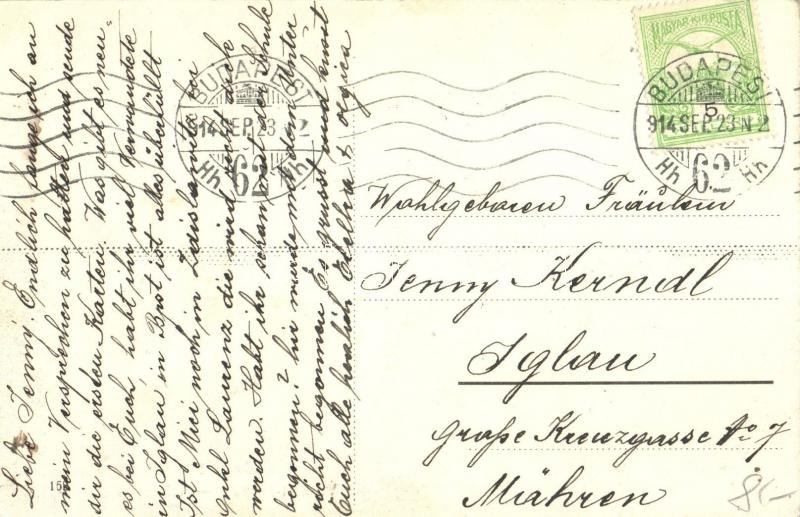 Liebe Jenny! Endlich fange ich an
mein Versprechen zu halten und sende
dir die ersten Karten. Was gibt es neu-
es bei Euch, habt ihr viel Verwundete
in Iglau in Brot ist alles überfüllt
Ist Mici noch in Zdislawitz der
onkl Laurenz die wird nicht
werden. Habt ihr schon mit der Schule
begonnen? hir wurde mit dem
nicht begonnen. Es grüst und küsst
Euch alle herzlich
15
MAGYAR KIR. POSTA
5
BUDAPEST
914 SEP. 23 N 2
Hh 62 Hh
BUDAPEST
914 SEP. 23 2
Hh 62 Hh
Wohlgeboren Fräulein
Jenny Kerndl
Iglau
große Kreuzgasse No 7
Mähren
8.-